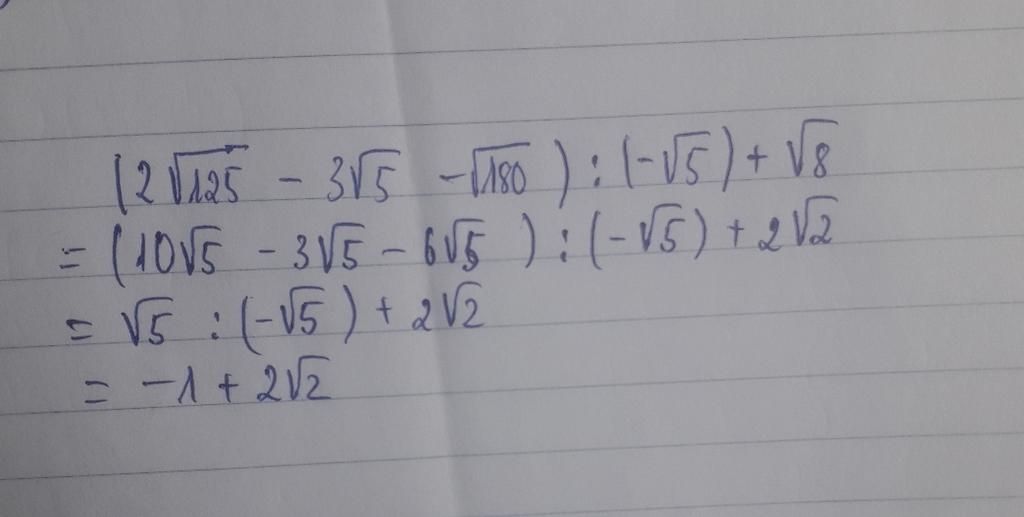 (2√125 - 3√5 - √180) : (-√5) + √8
= (10√5 - 3√5 - 6√5) : (-√5) + 2√2
= √5 : (-√5) + 2√2
= -1 + 2√2